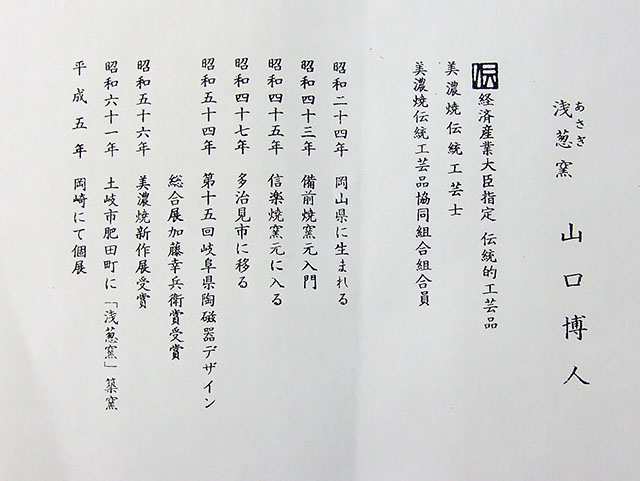 あさぎ
浅葱窯 山口博人
伝 経済産業大臣指定 伝統的工芸品
美濃焼伝統工芸士
美濃焼伝統工芸品協同組合組合員
昭和二十四年 岡山県に生まれる
昭和四十三年 備前焼窯元入門
昭和四十五年 信楽焼窯元に入る
昭和四十七年 多治見市に移る
昭和五十四年 第十五回岐阜県陶磁器デザイン
総合展加藤幸兵衛賞受賞
昭和五十六年 美濃焼新作展受賞
昭和六十一年 土岐市肥田町に「浅葱窯」築窯
平成五年 岡崎にて個展